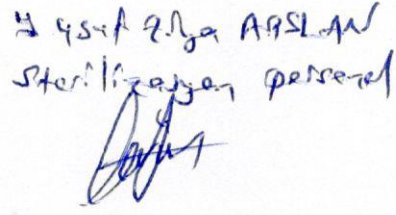 Yusuf Ziya ARSLAN
Sterilizasyon personel